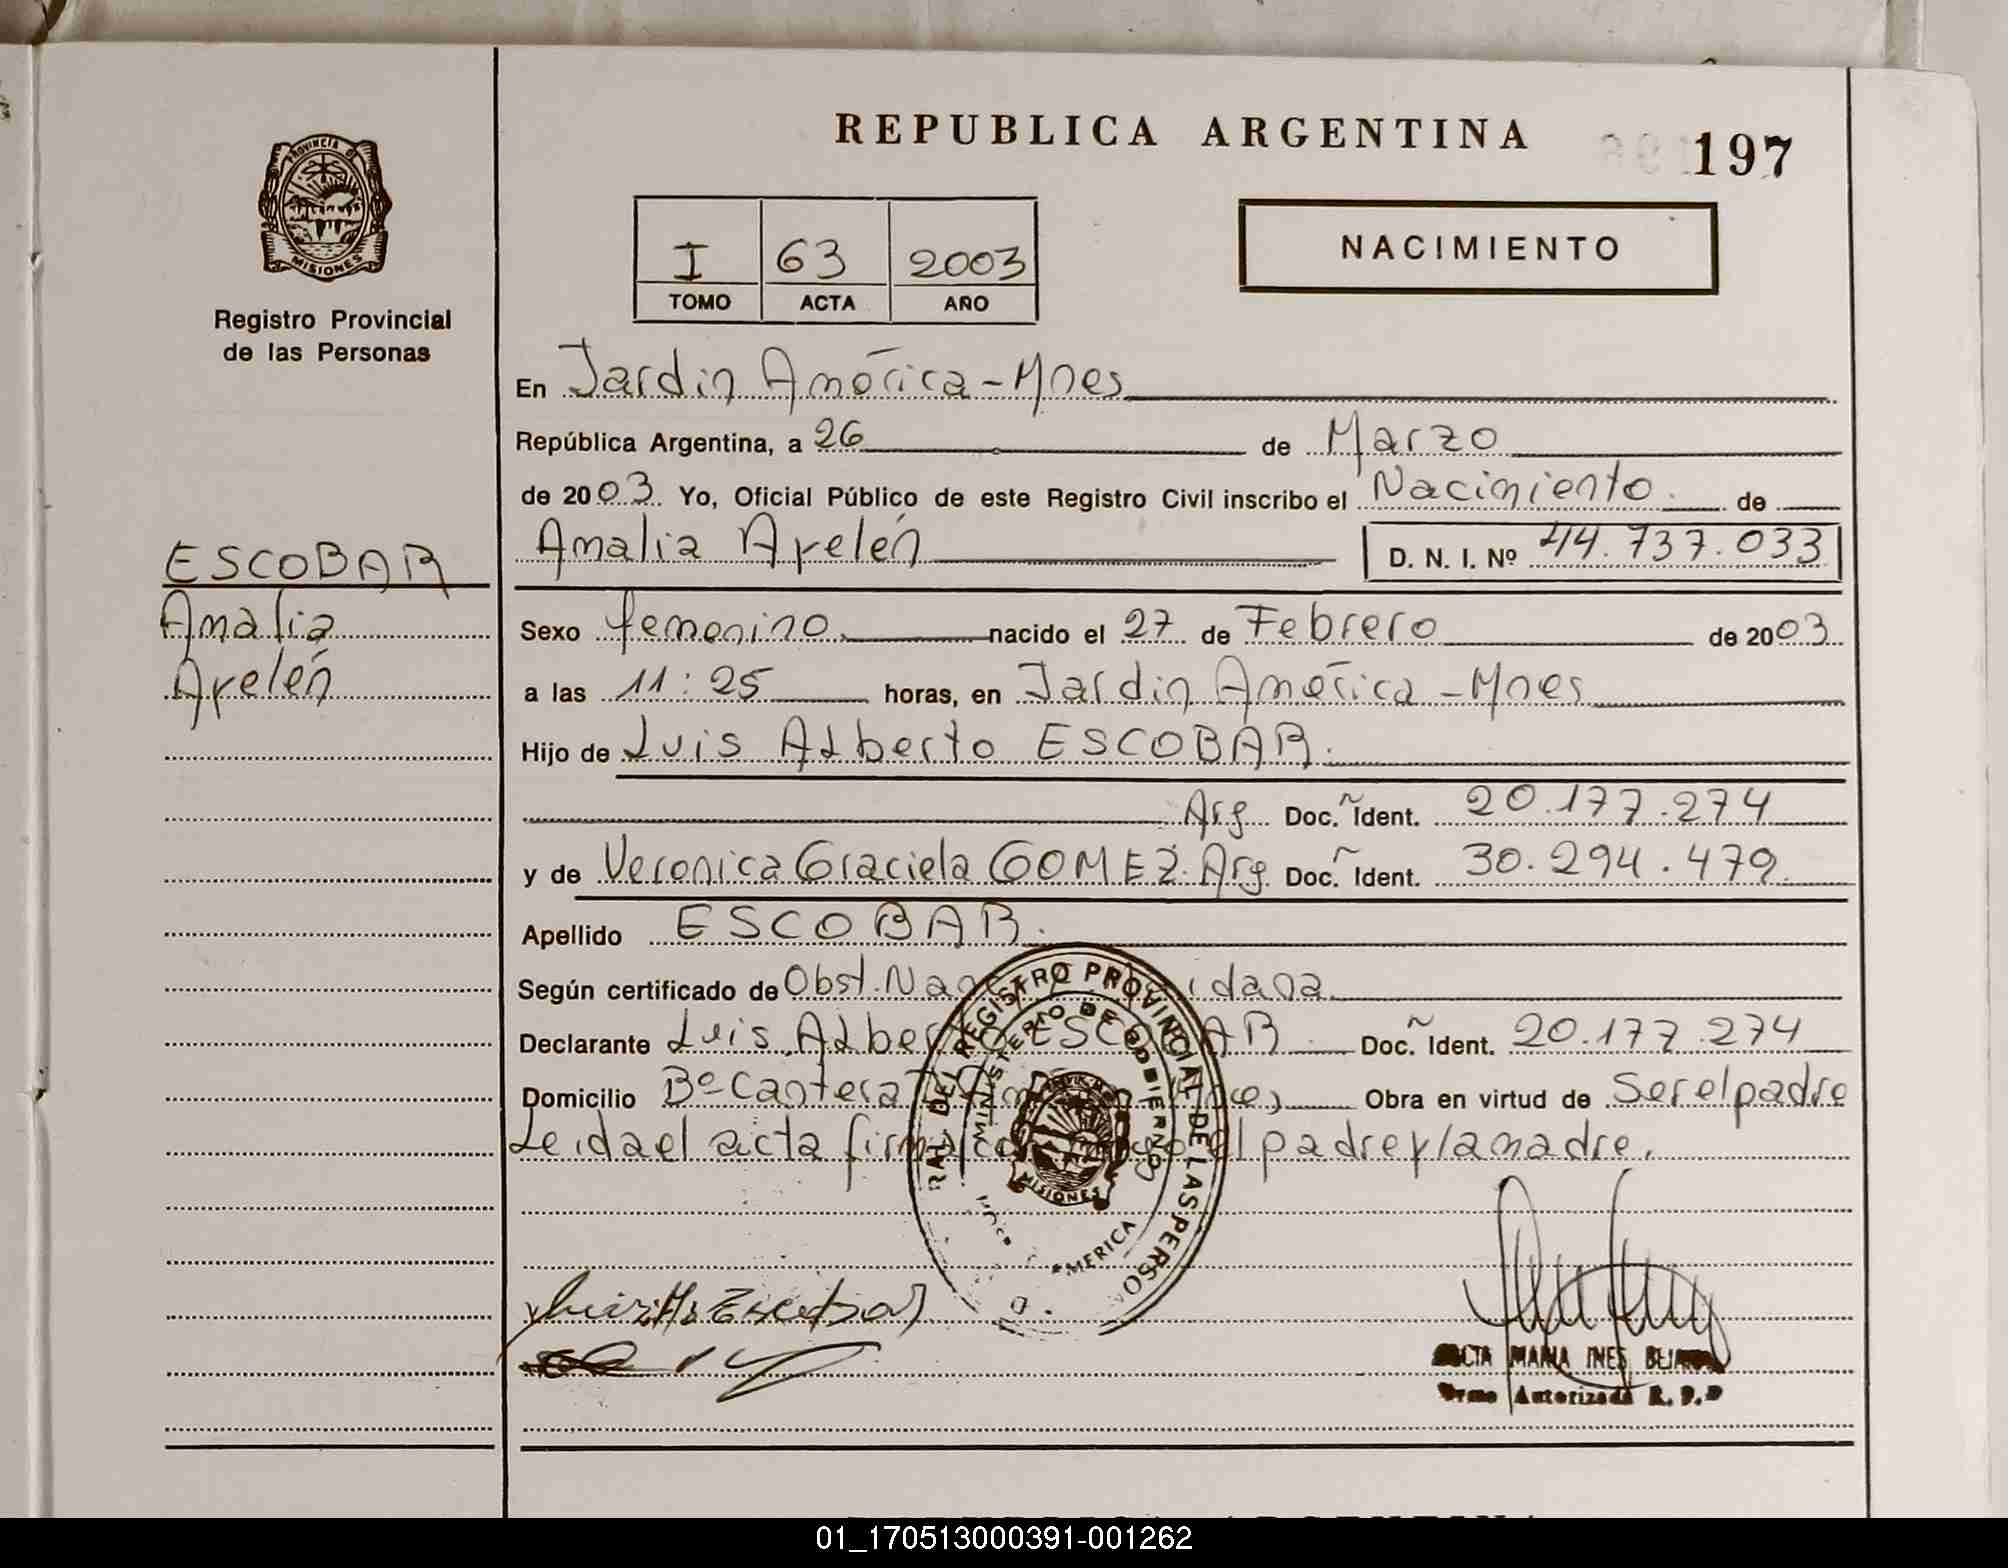 REPUBLICA ARGENTINA
197
PROVINCIA DE MISIONES
Registro Provincial
de las Personas
I 63 2003
TOMO ACTA AÑO
NACIMIENTO
En Jardin América - Mnes
República Argentina, a 26 de Marzo
de 2003. Yo, Oficial Público de este Registro Civil inscribo el Nacimiento. de
Amalia Ayelén D. N. I. Nº 44.737.033
ESCOBAR
Amalia
Ayelén
Sexo femenino nacido el 27 de Febrero de 2003
a las 11:25 horas, en Jardin América - Mnes
Hijo de Luis Alberto ESCOBAR.
Arg Doc. Ident. 20.177.274
y de Veronica Graciela GOMEZ. Arg Doc. Ident. 30.294.479
Apellido ESCOBAR.
Según certificado de Obst. 
Declarante Luis Alberto ESCOBAR Doc. Ident. 20.177.274
Domicilio Bº Cantera Obra en virtud de Ser el padre
Leida el acta el padre y la madre.
REGISTRO PROVINCIAL DE LAS PERSO
MINISTERIO DE GOBIERNO
MISIONES
MARIA INES
Autorizada
01_170513000391-001262